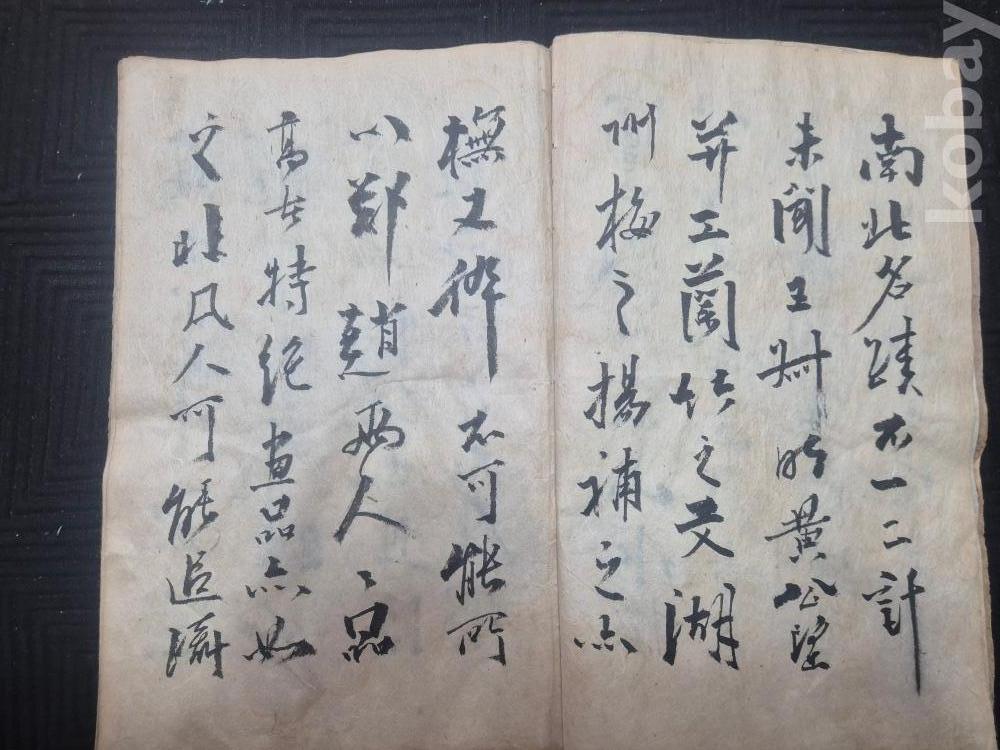 南北名蹟不一二計
未聞王叔明黃公望
并工蘭竹之文湖
州梅之揚補之亦
橅又併不可能所
以鄭趙兩人〻品
高古特絕畫品亦如
之非凡人可能追躡
kobay